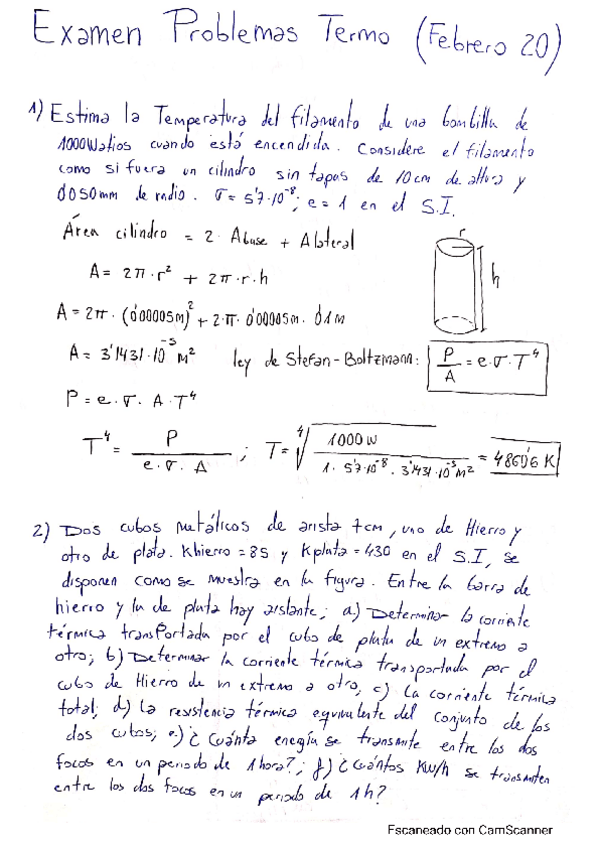 Examen Problemas Termo (Febrero 20)
1) Estima la Temperatura del filamento de una bombilla de
1000Watios cuando está encendida. Considere el filamento
como si fuera un cilindro sin tapas de 10cm de altura y
0'050mm de radio. σ = 5'7·10⁻⁸; e = 1 en el S.I.
Área cilindro = 2· Abase + Alateral
r
h
A = 2π·r² + 2π·r·h
A = 2π· (0'00005m)² + 2·π· 0'00005m· 0'1m
A = 3'1431·10⁻⁵ m²
ley de Stefan-Boltzmann: P/A = e·σ·T⁴
P = e·σ·A·T⁴
T⁴ = P/(e·σ·A) ; T = ⁴√(1000w/(1·5'7·10⁻⁸·3'1431·10⁻⁵m²)) = 4860'6 K
2) Dos cubos metálicos de arista 7cm, uno de Hierro y
otro de plata. Khierro = 85 y Kplata = 430 en el S.I, se
disponen como se muestra en la figura. Entre la barra de
hierro y la de plata hay aislante; a) Determinar la corriente
térmica transportada por el cubo de plata de un extremo a
otro; b) Determinar la corriente térmica transportada por el
cubo de Hierro de un extremo a otro, c) La corriente térmica
total; d) La resistencia térmica equivalente del conjunto de los
dos cubos; e) ¿Cuánta energía se transmite entre los dos
focos en un periodo de 1 hora?; f) ¿Cuántos KW/h se transmiten
entre los dos focos en un periodo de 1h?
Escaneado con CamScanner